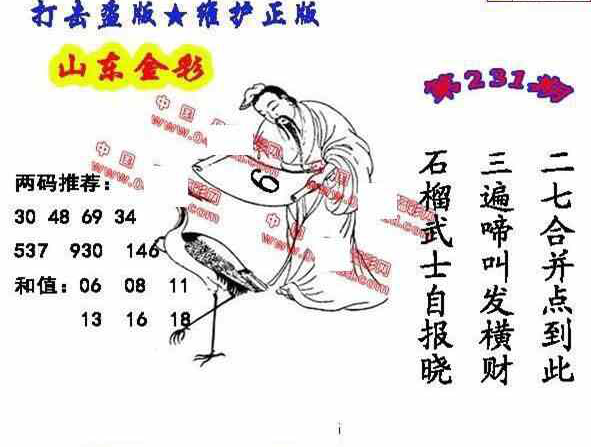 打击盗版★维护正版
山东金彩
第231期
两码推荐：
30 48 69 34
537 930 146
和值：06 08 11
13 16 18
6
二七合并点到此
三遍啼叫发横财
石榴武士自报晓